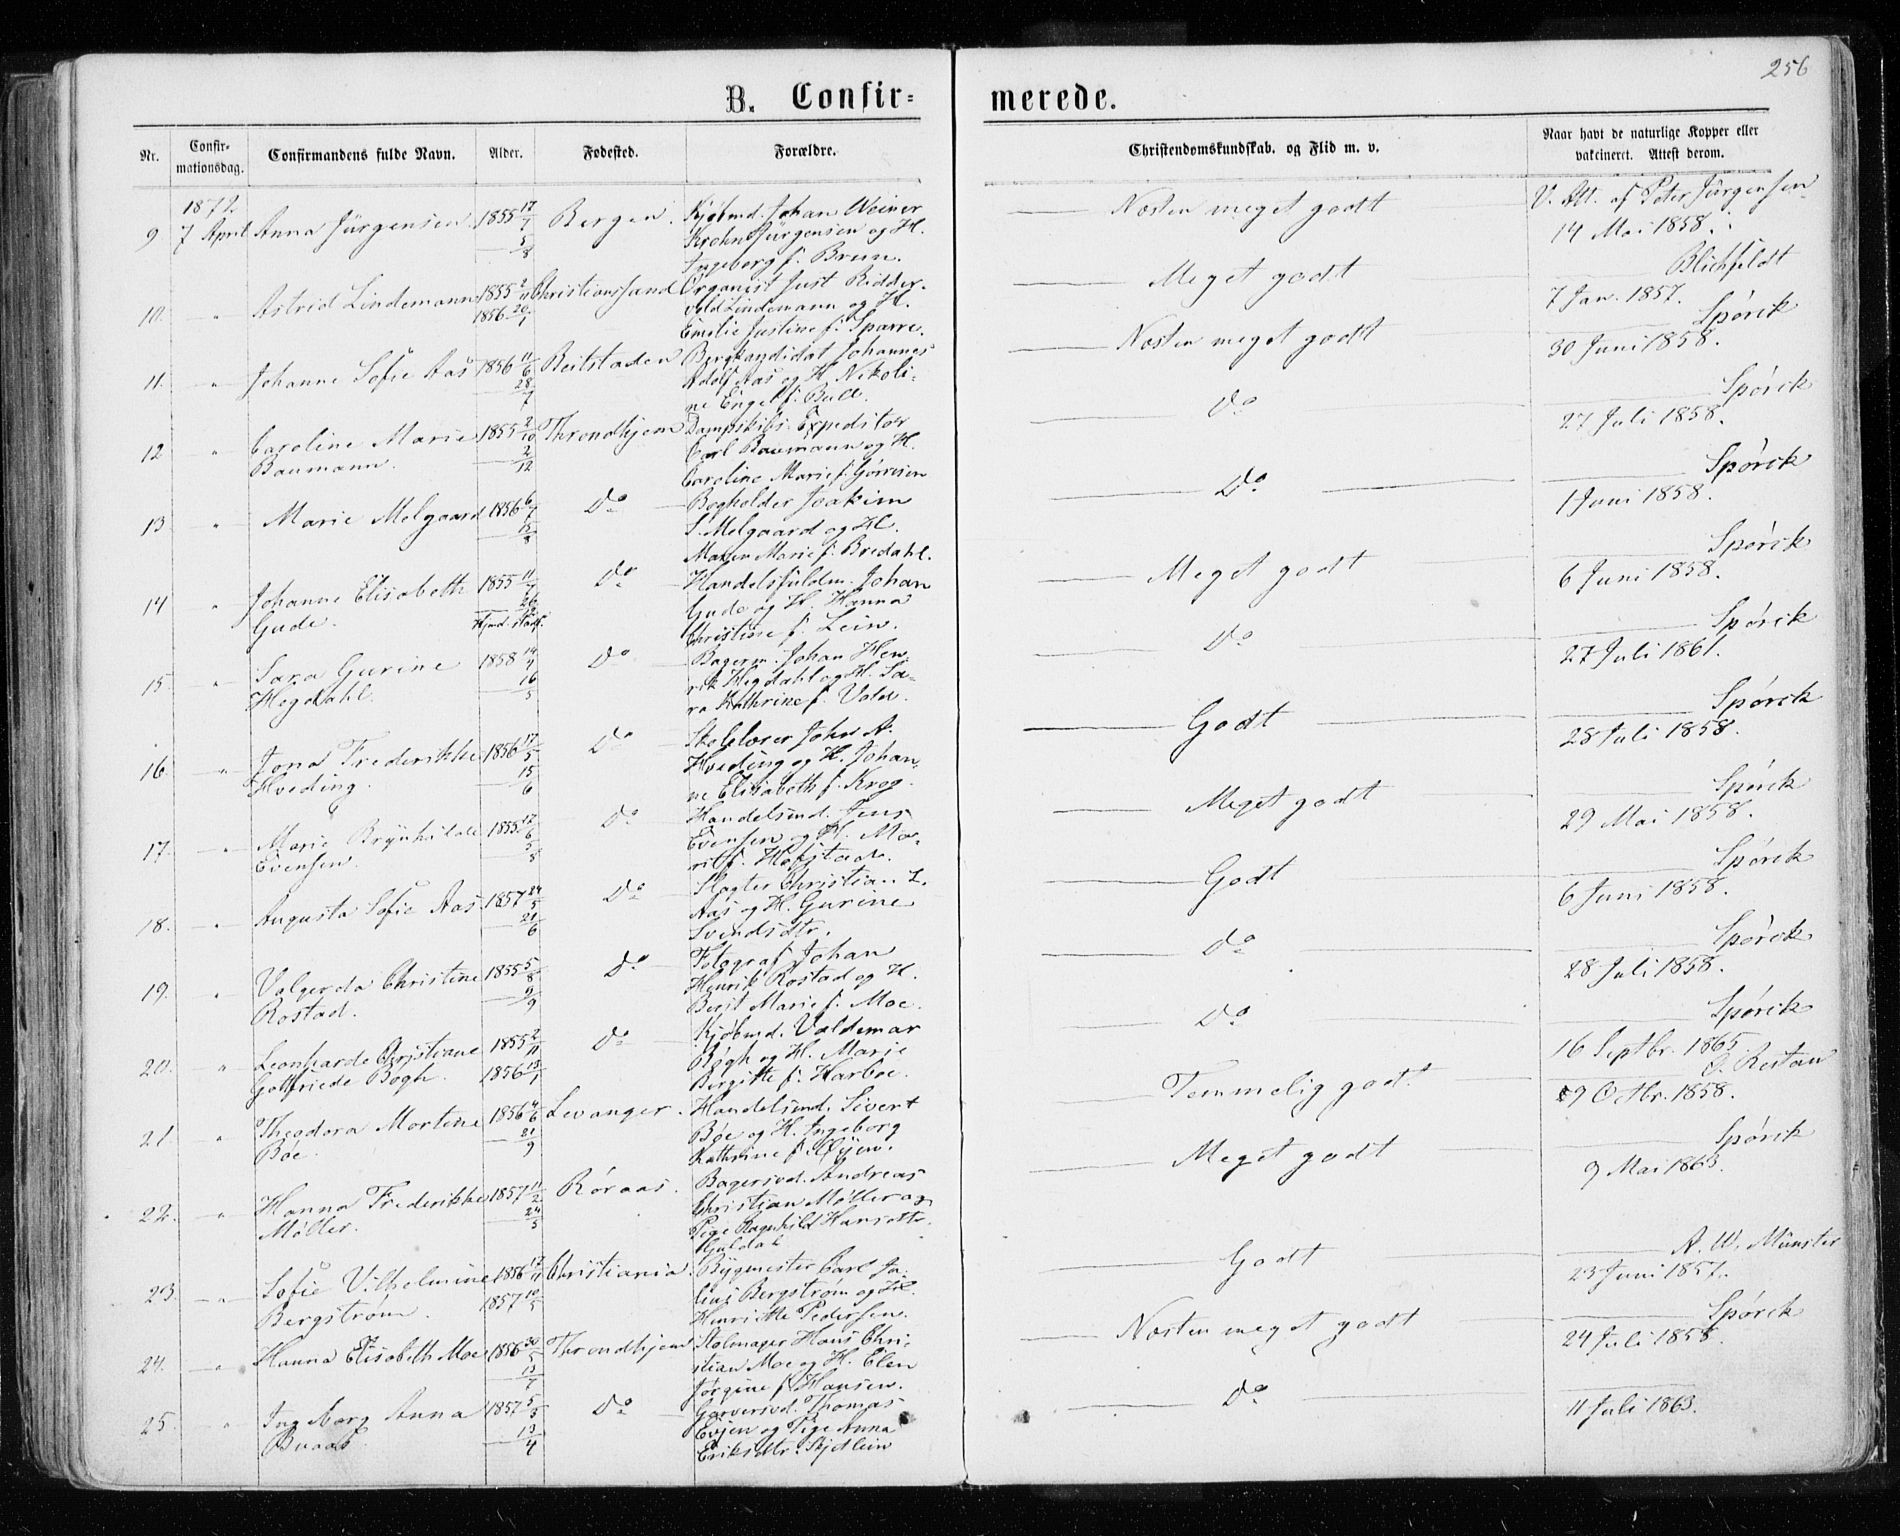 256
B. Confir= merede.
Nr. Confir-mationsdag. Confirmandens fulde Navn. Alder. Fødested. Forældre. Christendomskundskab. og Flid m. v. Naar havt de naturlige Kopper eller vakcineret. Attest derom.
1872.
9 7 April Anna Jürgensen 1855 17/7 5/8 Bergen. Kjøbmd. Johan Weiner
Krohn Jürgensen og H.
Ingeborg f. Brun.
Næsten meget godt V. Att. af Peter Jürgensen
14 Mai 1858.
10. " Astrid Lindemann 1855 2/11 1856 20/1 Christianssand Organist Just Ridder-
vold Lindemann og H.
Emilie Justine f. Sparre.
Meget godt Blichfeldt
7 Jan. 1857.
11. " Johanne Sofie Aas 1856 11/6 28/7 Beitstaden Bergkandidat Johannes
Adolf Aas og H. Nikoli-
ne Engel f. Bull.
Næsten meget godt Spørck
30 Juni 1858.
12 " Caroline Marie 1855 2/10 2/12 Throndhjem Dampskibs-Expeditør
Baumann. Carl Baumann og H.
Caroline Marie f. Görrisen
Do Spørck
27 Juli 1858.
13 " Marie Melgaard 1856 6/7 15/8 Do Bogholder Joakim
S. Melgaard og H.
Maren Marie f. Bredahl.
Do Spørck
1 Juni 1858.
14 " Johanne Elisabeth 1855 11/7 Do Handelsfuldm. Johan
Gude. Gude og H. Hanna
Christine f. Lein.
Meget godt Spørck
6 Juni 1858.
15 " Sara Gurine 1858 14/4 16/5 Do Bagerm. Johan Hen-
Hegdahl. rik Hegdahl og H. Sa-
ra Kathrine f. Vold.
Do Spørck
27 Juli 1861.
16 " Jona Frederikke 1856 17/5 15/6 Do Skolelærer John A.
Hveding. Hveding og H. Johan-
ne Elisabeth f. Krog.
Godt Spørck
28 Juli 1858.
17. " Marie Brynhilde 1855 17/6 5/8 Do Handelsmd. Jens
Evensen. Evensen og H. Ma-
rit f. Hofstad.
Meget godt Spørck
29 Mai 1858.
18. " Augusta Sofie Aas 1857 24/5 21/6 Do Slagter Christian L.
Aas og H. Gurine
Svendsdtr.
Godt Spørck
6 Juni 1858.
19. " Valgerda Christine 1855 5/8 9/9 Do Fotograf Johan
Rostad. Henrik Rostad og H.
Berit Marie f. Moe.
Do Spørck
28 Juli 1858.
20. " Leonharde Christiane 1855 2/11 1856 13/1 Do Kjøbmd. Valdemar
Gotfriede Bogh. Bøgh og H. Marie
Birgitte f. Harboe.
Do Spørck
16 Septbr. 1865
21 " Theodora Mortine 1856 4/6 21/9 Levanger. Handelsmd. Sivert
Bøe. Bøe og H. Ingeborg
Kathrine f. Øyen.
Temmelig godt. O. Restau
9 Otbr. 1858.
22. " Hanna Frederikke 1857 11/2 24/5 Røraas. Bagersvd. Andreas
Møller. Christian Møller og
Pige Ragnhild Hansdtr.
Guldal
Meget godt Spørck
9 Mai 1863.
23. " Sofie Vilhelmine 1856 17/11 1857 10/5 Christiania. Bygmester Carl Ju-
Bergstrøm. lius Bergstrøm og H.
Henriette Pedersen.
Godt A. W. Münster
23 Juni 1857.
24. " Hanna Elisabeth Moe 1856 30/5 13/7 Throndhjem Stolmager Hans Chri-
stian Moe og H. Elen
Jørgine f. Hansen.
Næsten meget godt Spørck
24 Juli 1858.
25. " Ingeborg Anna 1857 5/3 13/4 Do Garversvd. Thomas
Buaas. Evjen og Pige Anna
Eriksdtr. Skjetlein
Do 11 Juli 1863.